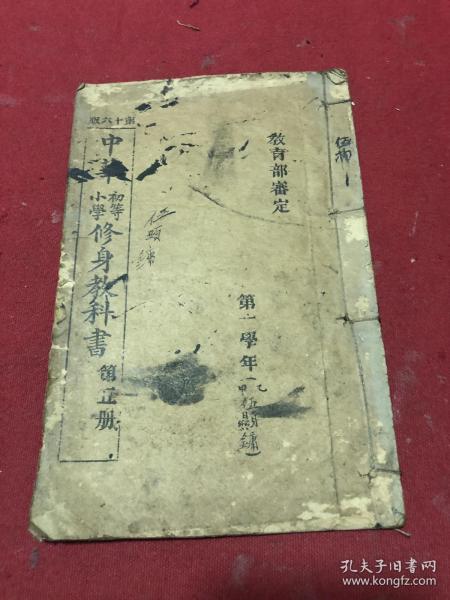 教育部審定
第一學年
伍顯鏞
第十六版
中華
初等
小學
修身教科書
第五册
孔夫子旧书网
www.kongfz.com